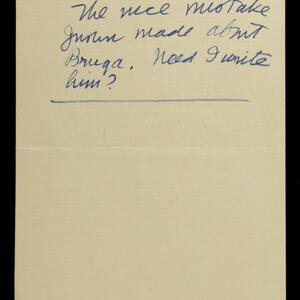 The nice mistake
made about
Bruga. Need I write
him?